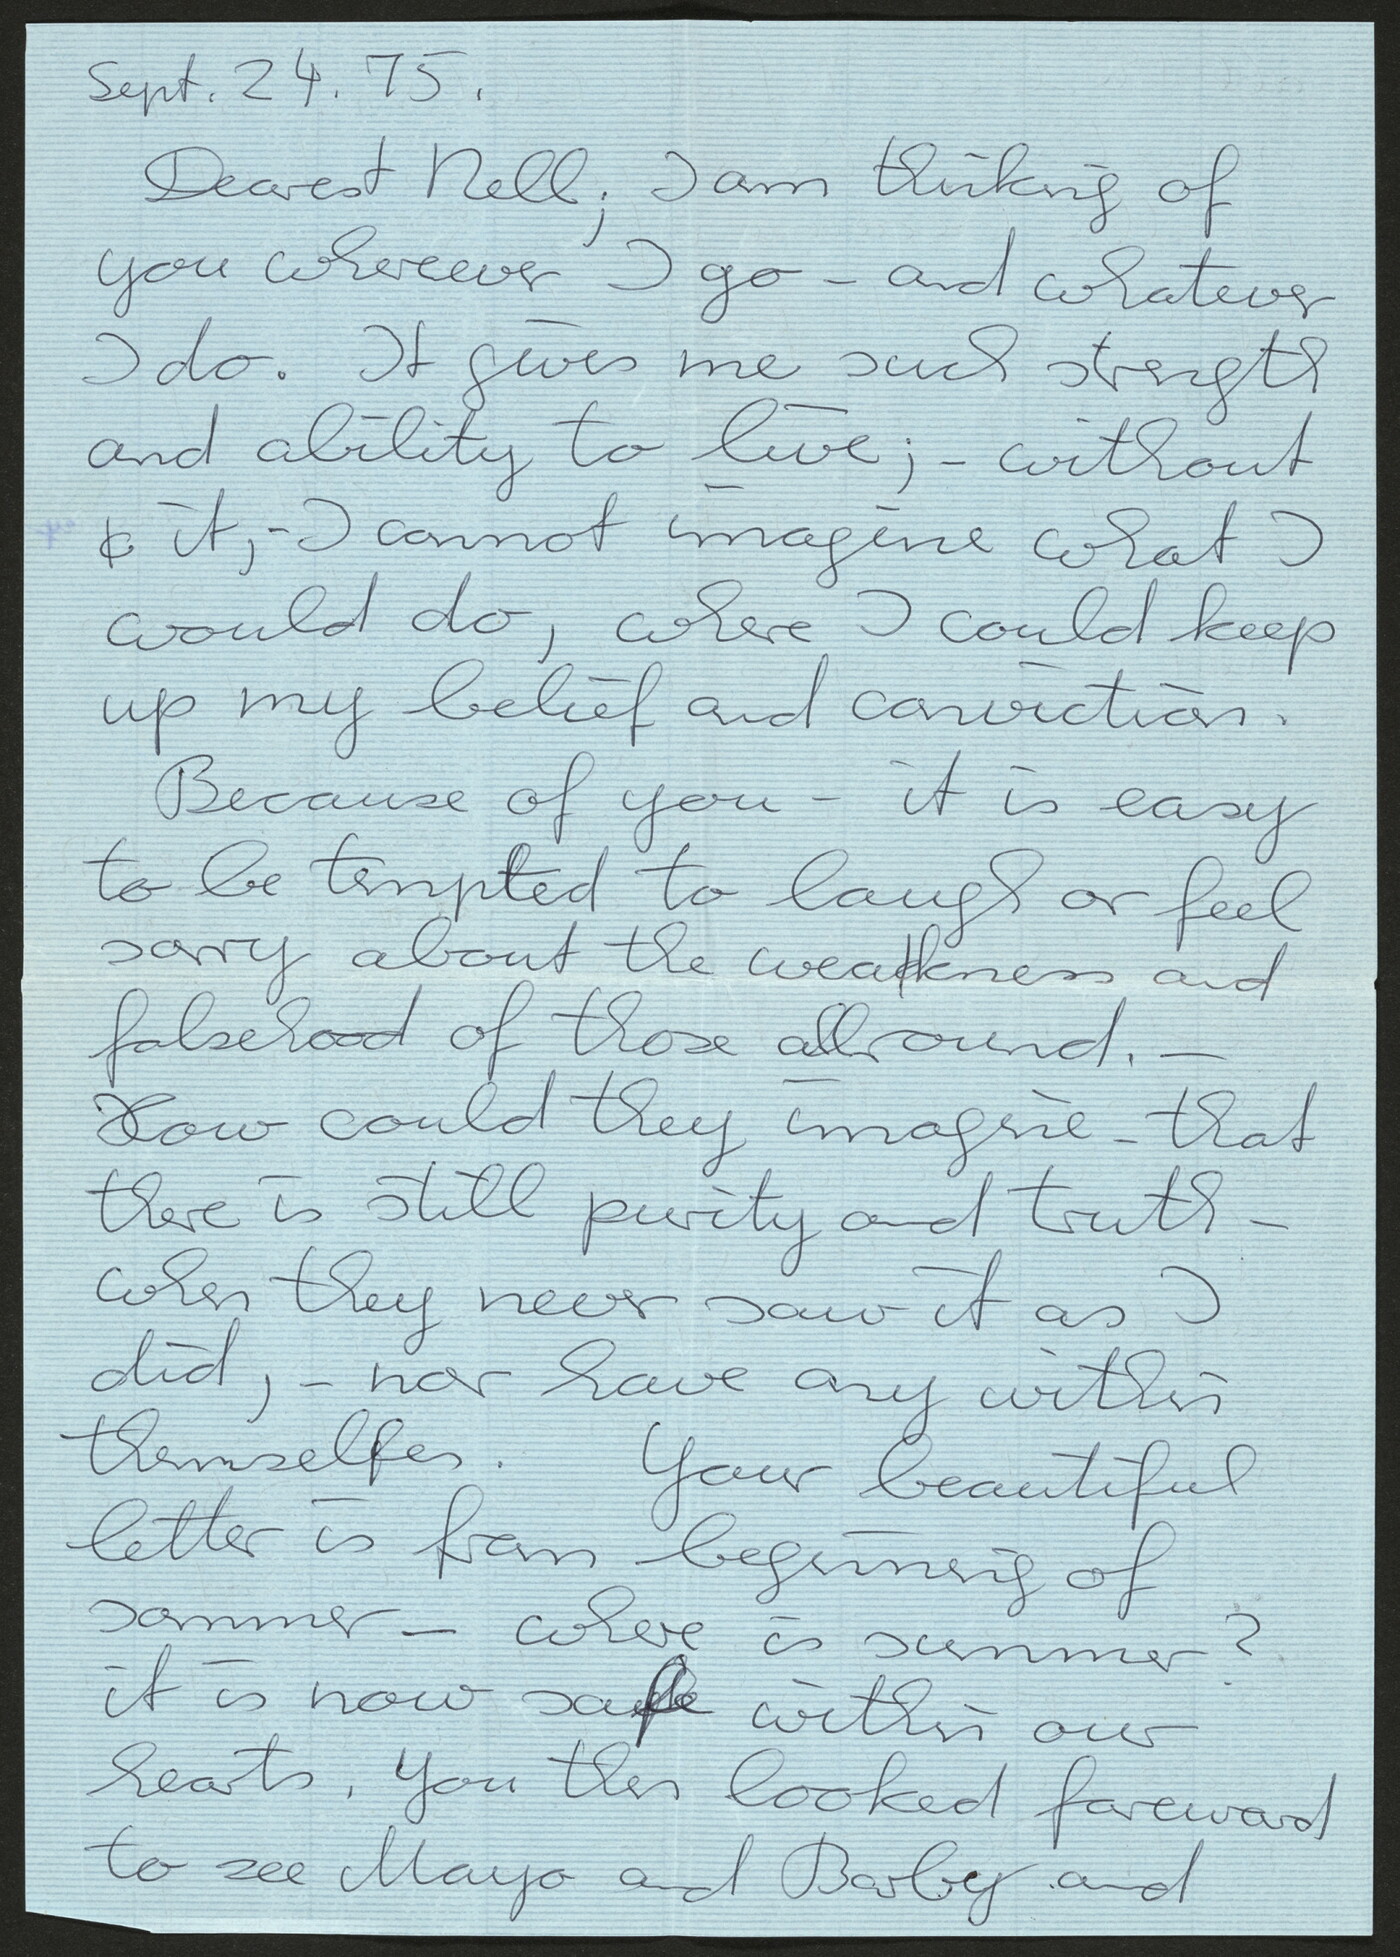 Sept. 24. 75.
Dearest Nell; I am thinking of
you whereever I go - and whatever
I do. It gives me such strength
and ability to live; - without
it, - I cannot imagine what I
would do, where I could keep
up my belief and conviction.
Because of you - it is easy
to be tempted to laugh or feel
sorry about the weakness and
falsehood of those allround. -
How could they imagine - that
there is still purity and truth -
when they never saw it as I
did, - nor have any within
themselfes. Your beautiful
letter is from beginning of
sommer - where is summer?
it is now safe within our
hearts. You then looked foreward
to see Mayo and Barby and